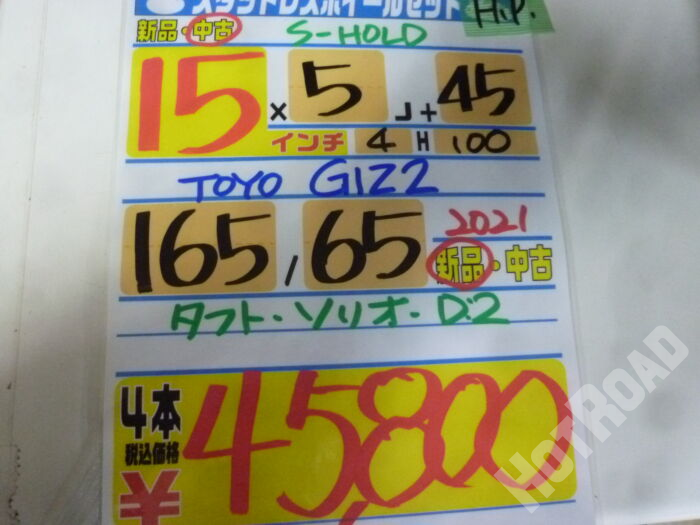 スタッドレスホイールセット H.P.
新品・中古 S-HOLD
15 × 5 J+ 45
インチ 4 H 100
TOYO GIZ2
165 / 65 2021
新品・中古
タフト・ソリオ・D:2
4本 税込価格 ¥ 45,800
HOTROAD